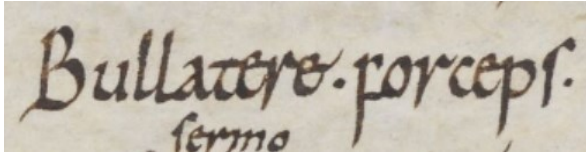 Bullatere. forceps.
sermo